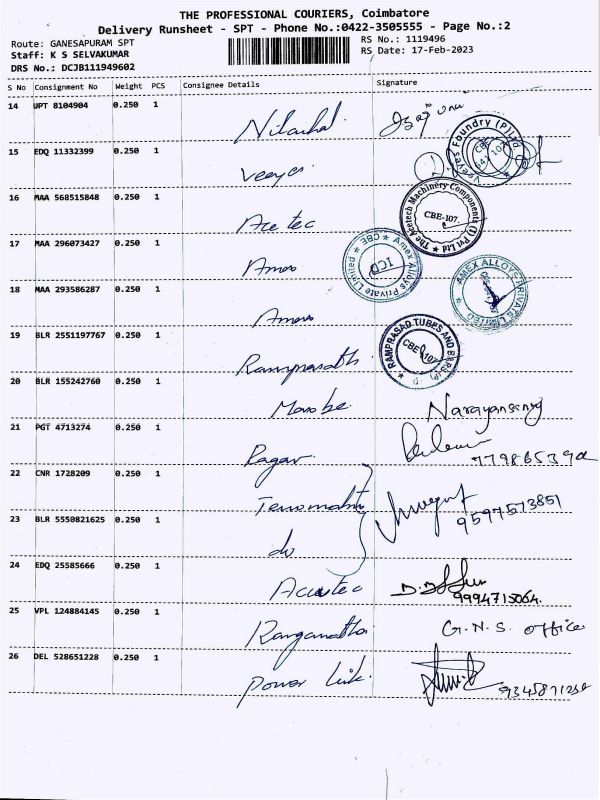 THE PROFESSIONAL COURIERS, Coimbatore
Delivery Runsheet - SPT - Phone No.:0422-3505555 - Page No.:2
Route: GANESAPURAM SPT
RS No.: 1119496
Staff: K S SELVAKUMAR
RS Date: 17-Feb-2023
DRS No.: DCJB111949602
S No Consignment No Weight PCS Consignee Details Signature
14 UPT 8104904 0.250 1
15 EDQ 11332399 0.250 1 Veeyes
Veeyes Foundry (P) Ltd
16 MAA 568515848 0.250 1 Ace tec
The Acetech Machinery Components (I) Pvt Ltd
CBE-107.
17 MAA 296073427 0.250 1 Amex
Amex Alloys Private Limited CBE
18 MAA 293586287 0.250 1 Amex
AMEX ALLOYS PRIVATE LIMITED
19 BLR 2551197767 0.250 1 Ramprasath
RAMPRASAD TUBES AND BARS (P)
CBE 107
20 BLR 155242760 0.250 1
21 PGT 4713274 0.250 1 Ragav
22 CNR 1728209 0.250 1
9597573851
23 BLR 5550821625 0.250 1 do
24 EDQ 25585666 0.250 1
9994715064.
25 VPL 124884145 0.250 1 G.N.S. office
26 DEL 528651228 0.250 1 Power Link.